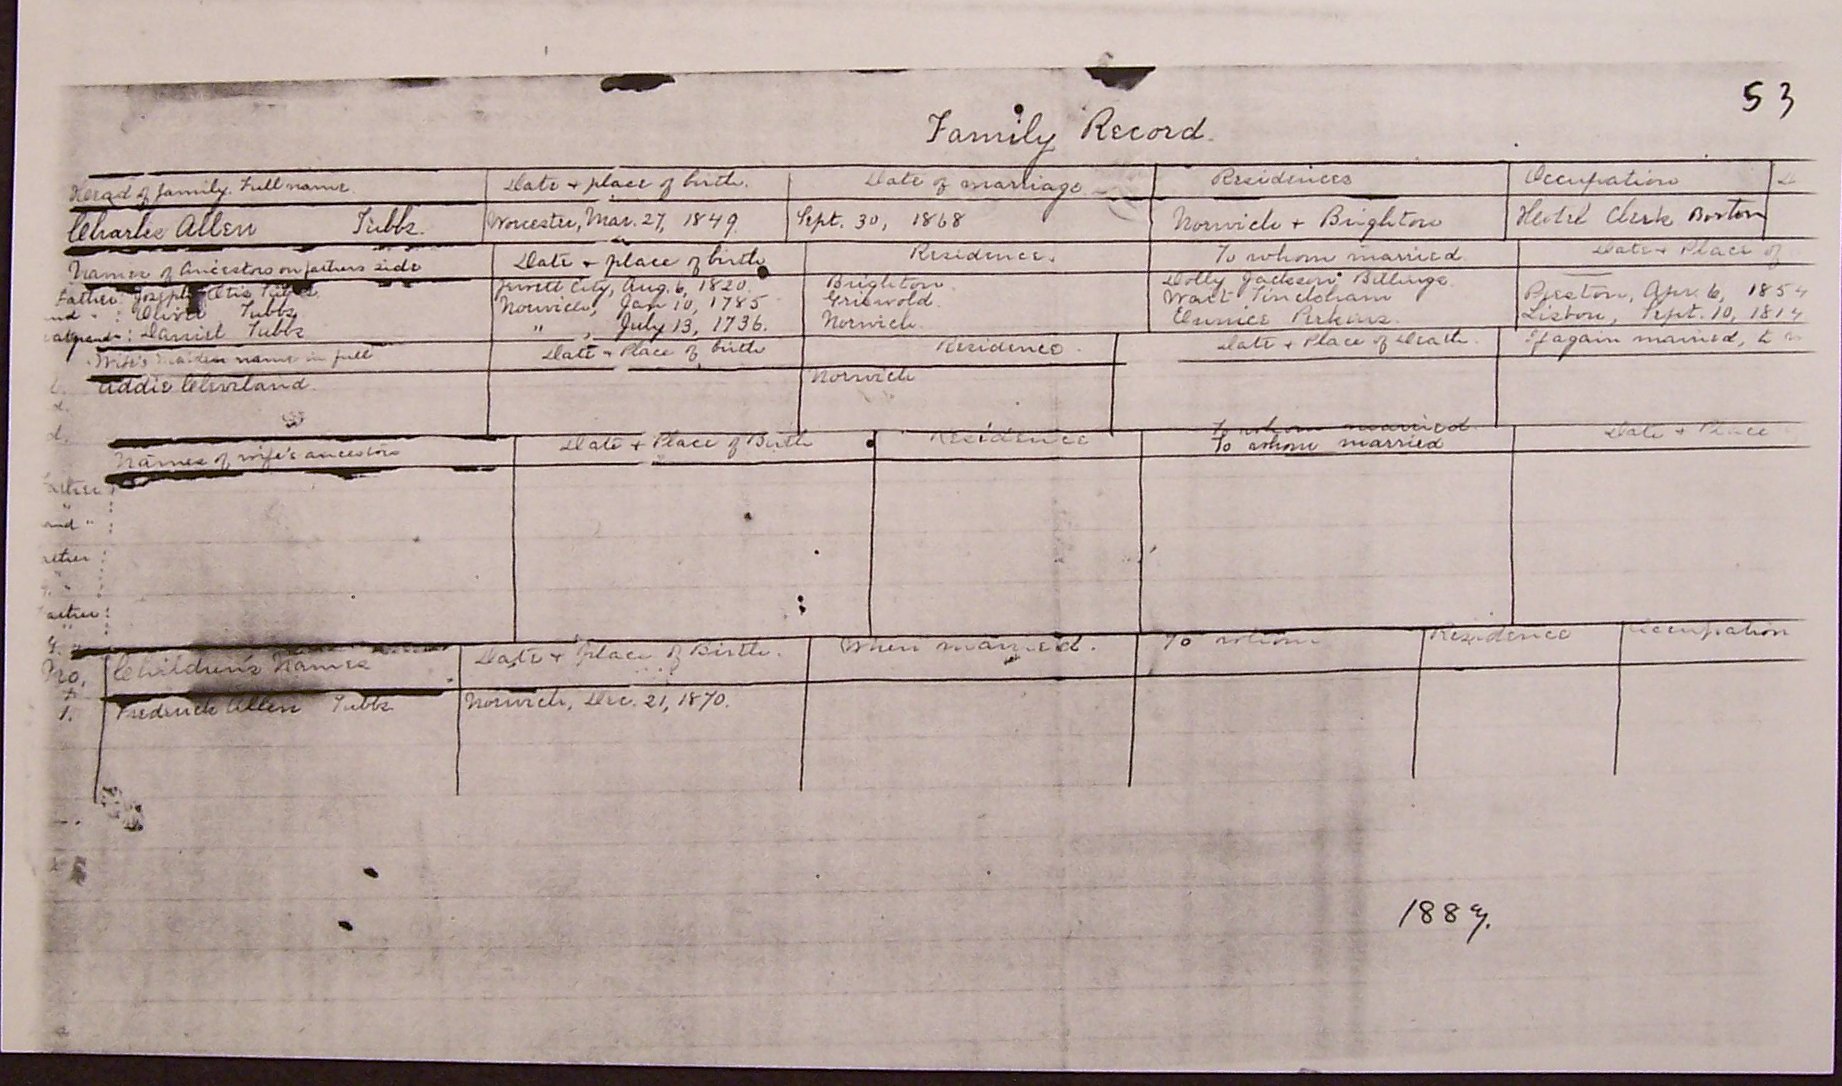 53
Family Record.
Head of family. Full name. Date + place of birth. Date of marriage Residences Occupation
Charles Allen Tubbs. Worcester, Mar. 27, 1849. Sept. 30, 1868 Norwich + Brighton Hotel Clerk Boston
Names of Ancestors on fathers side Date + place of birth Residence. To whom married Date + Place of
Father: Joseph Otis Jewett City, Aug. 6, 1820. Brighton. Dolly Jackson Billings.
nd " : Oliver Tubbs Norwich, Jan 10, 1785 Griswold. Preston, Apr. 6, 1854
: Daniel Tubbs " , July 13, 1736. Norwich. Eunice Perkins. Lisbon, Sept. 10, 1814
Wife's Maiden name in full Date + Place of birth Residence. Date + Place of Death. If again married, to
Addie Cleveland. Norwich
To whom married
Names of wife's ancestors Date + Place of Birth Residence To whom married Date + Place
and "
No. Children's Names Date + Place of Birth. When married. To whom Residence Occupation
1. Frederick Allen Tubbs Norwich, Dec. 21, 1870.
1889.